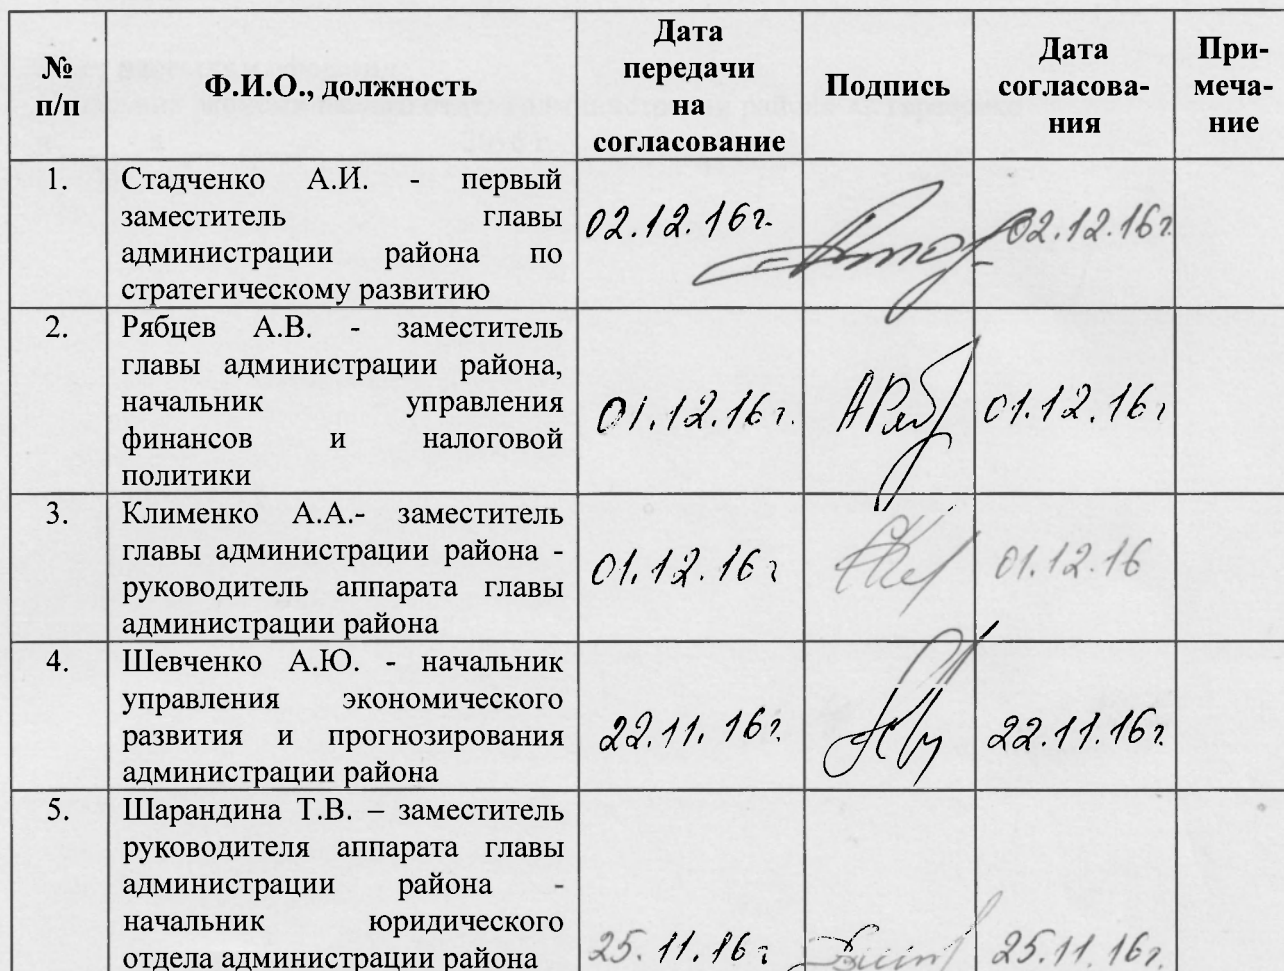 № п/п
Ф.И.О., должность
Дата передачи на согласование
Подпись
Дата согласова-ния
При-меча-ние
1.
Стадченко А.И. - первый
заместитель главы
администрации района по
стратегическому развитию
02.12.16г.
02.12.16г
2.
Рябцев А.В. - заместитель
главы администрации района,
начальник управления
финансов и налоговой
политики
01.12.16г.
01.12.16г
3.
Клименко А.А.- заместитель
главы администрации района -
руководитель аппарата главы
администрации района
01.12.16г
01.12.16
4.
Шевченко А.Ю. - начальник
управления экономического
развития и прогнозирования
администрации района
22.11.16г.
22.11.16г.
5.
Шарандина Т.В. – заместитель
руководителя аппарата главы
администрации района -
начальник юридического
отдела администрации района
25.11.16г
25.11.16г.